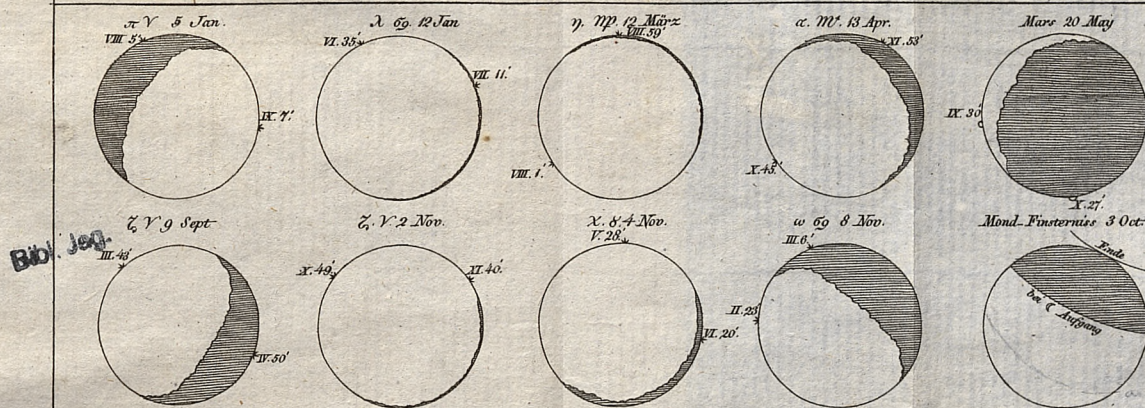 π ♈ 5 Jan.
VIII. 5'
IX. 7'
λ ♋ 12 Jan
VI. 35'
VII. 11.'
η. ♍. 12 März
VIII. 59'
VIII. 1.'
α. ♏. 13 Apr.
XI. 53'
X. 45.'
Mars 20 May
IX. 30
X. 27.'
ζ ♈ 9 Sept
III. 43'
IV. 50'
ζ. ♈. 2 Nov.
X. 49.'
XI. 40.'
χ. ♉. 4 Nov.
V. 28.
VI. 20.'
ω ♋ 8 Nov.
III. 6.'
II. 23'
Mond-Finsterniss 3 Oct.
Ende
bei ☾ Aufgang
Bibl. Jag.